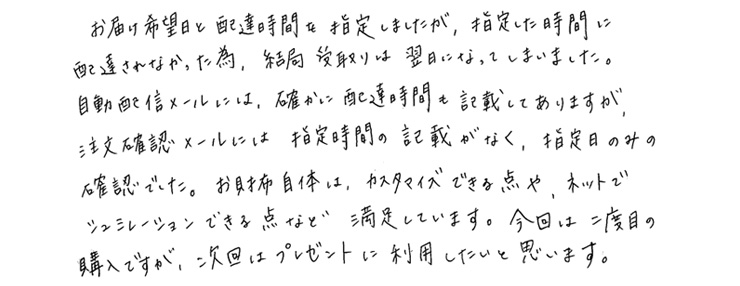 お届け希望日と配達時間を指定しましたが、指定した時間に
配達されなかった為、結局受取りは翌日になってしまいました。
自動配信メールには、確かに配達時間も記載してありますが、
注文確認メールには指定時間の記載がなく、指定日のみの
確認でした。お財布自体は、カスタマイズできる点や、ネットで
シュミレーションできる点など満足しています。今回は二度目の
購入ですが、次回はプレゼントに利用したいと思います。